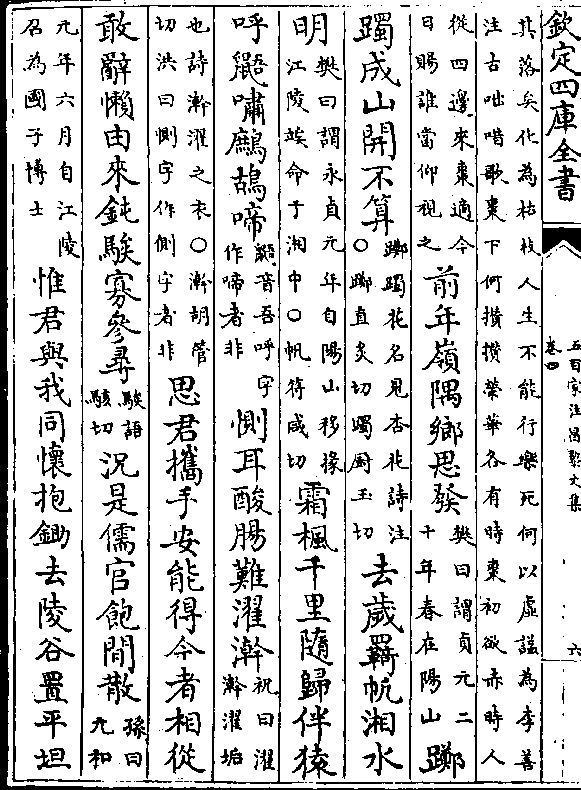 欽定四庫全書
五百家注昌黎文集 卷四 六
其落矣化為枯枝人生不能行樂死何以虛諡為李善
注古咄唶歌棗下何攢攢榮華各有時棗初欲赤時人
從四邊來棗適今
日賜誰當仰視之
前年嶺隅鄉思發
樊曰謂貞元二
十年春在陽山
躑
躅成山開不算
躑躅花名見杏花詩注
○躑直炙切躅厨玉切
去歲羇帆湘水
明
樊曰謂永貞元年自陽山移掾
江陵竢命于湘中○帆符咸切
霜楓千里隨歸伴猿
呼鼯嘯鷓鴣啼
鼯音吾呼字
作啼者非
惻耳酸腸難濯澣
祝曰濯
澣濯垢
也詩澣濯之衣○澣胡管
切洪曰惻字作側字者非
思君攜手安能得今者相從
敢辭懶由來鈍騃寡參尋
騃語
駭切
況是儒官飽閒散
孫曰
元和
元年六月自江陵
召為國子博士
惟君與我同懷抱鋤去陵谷置平坦